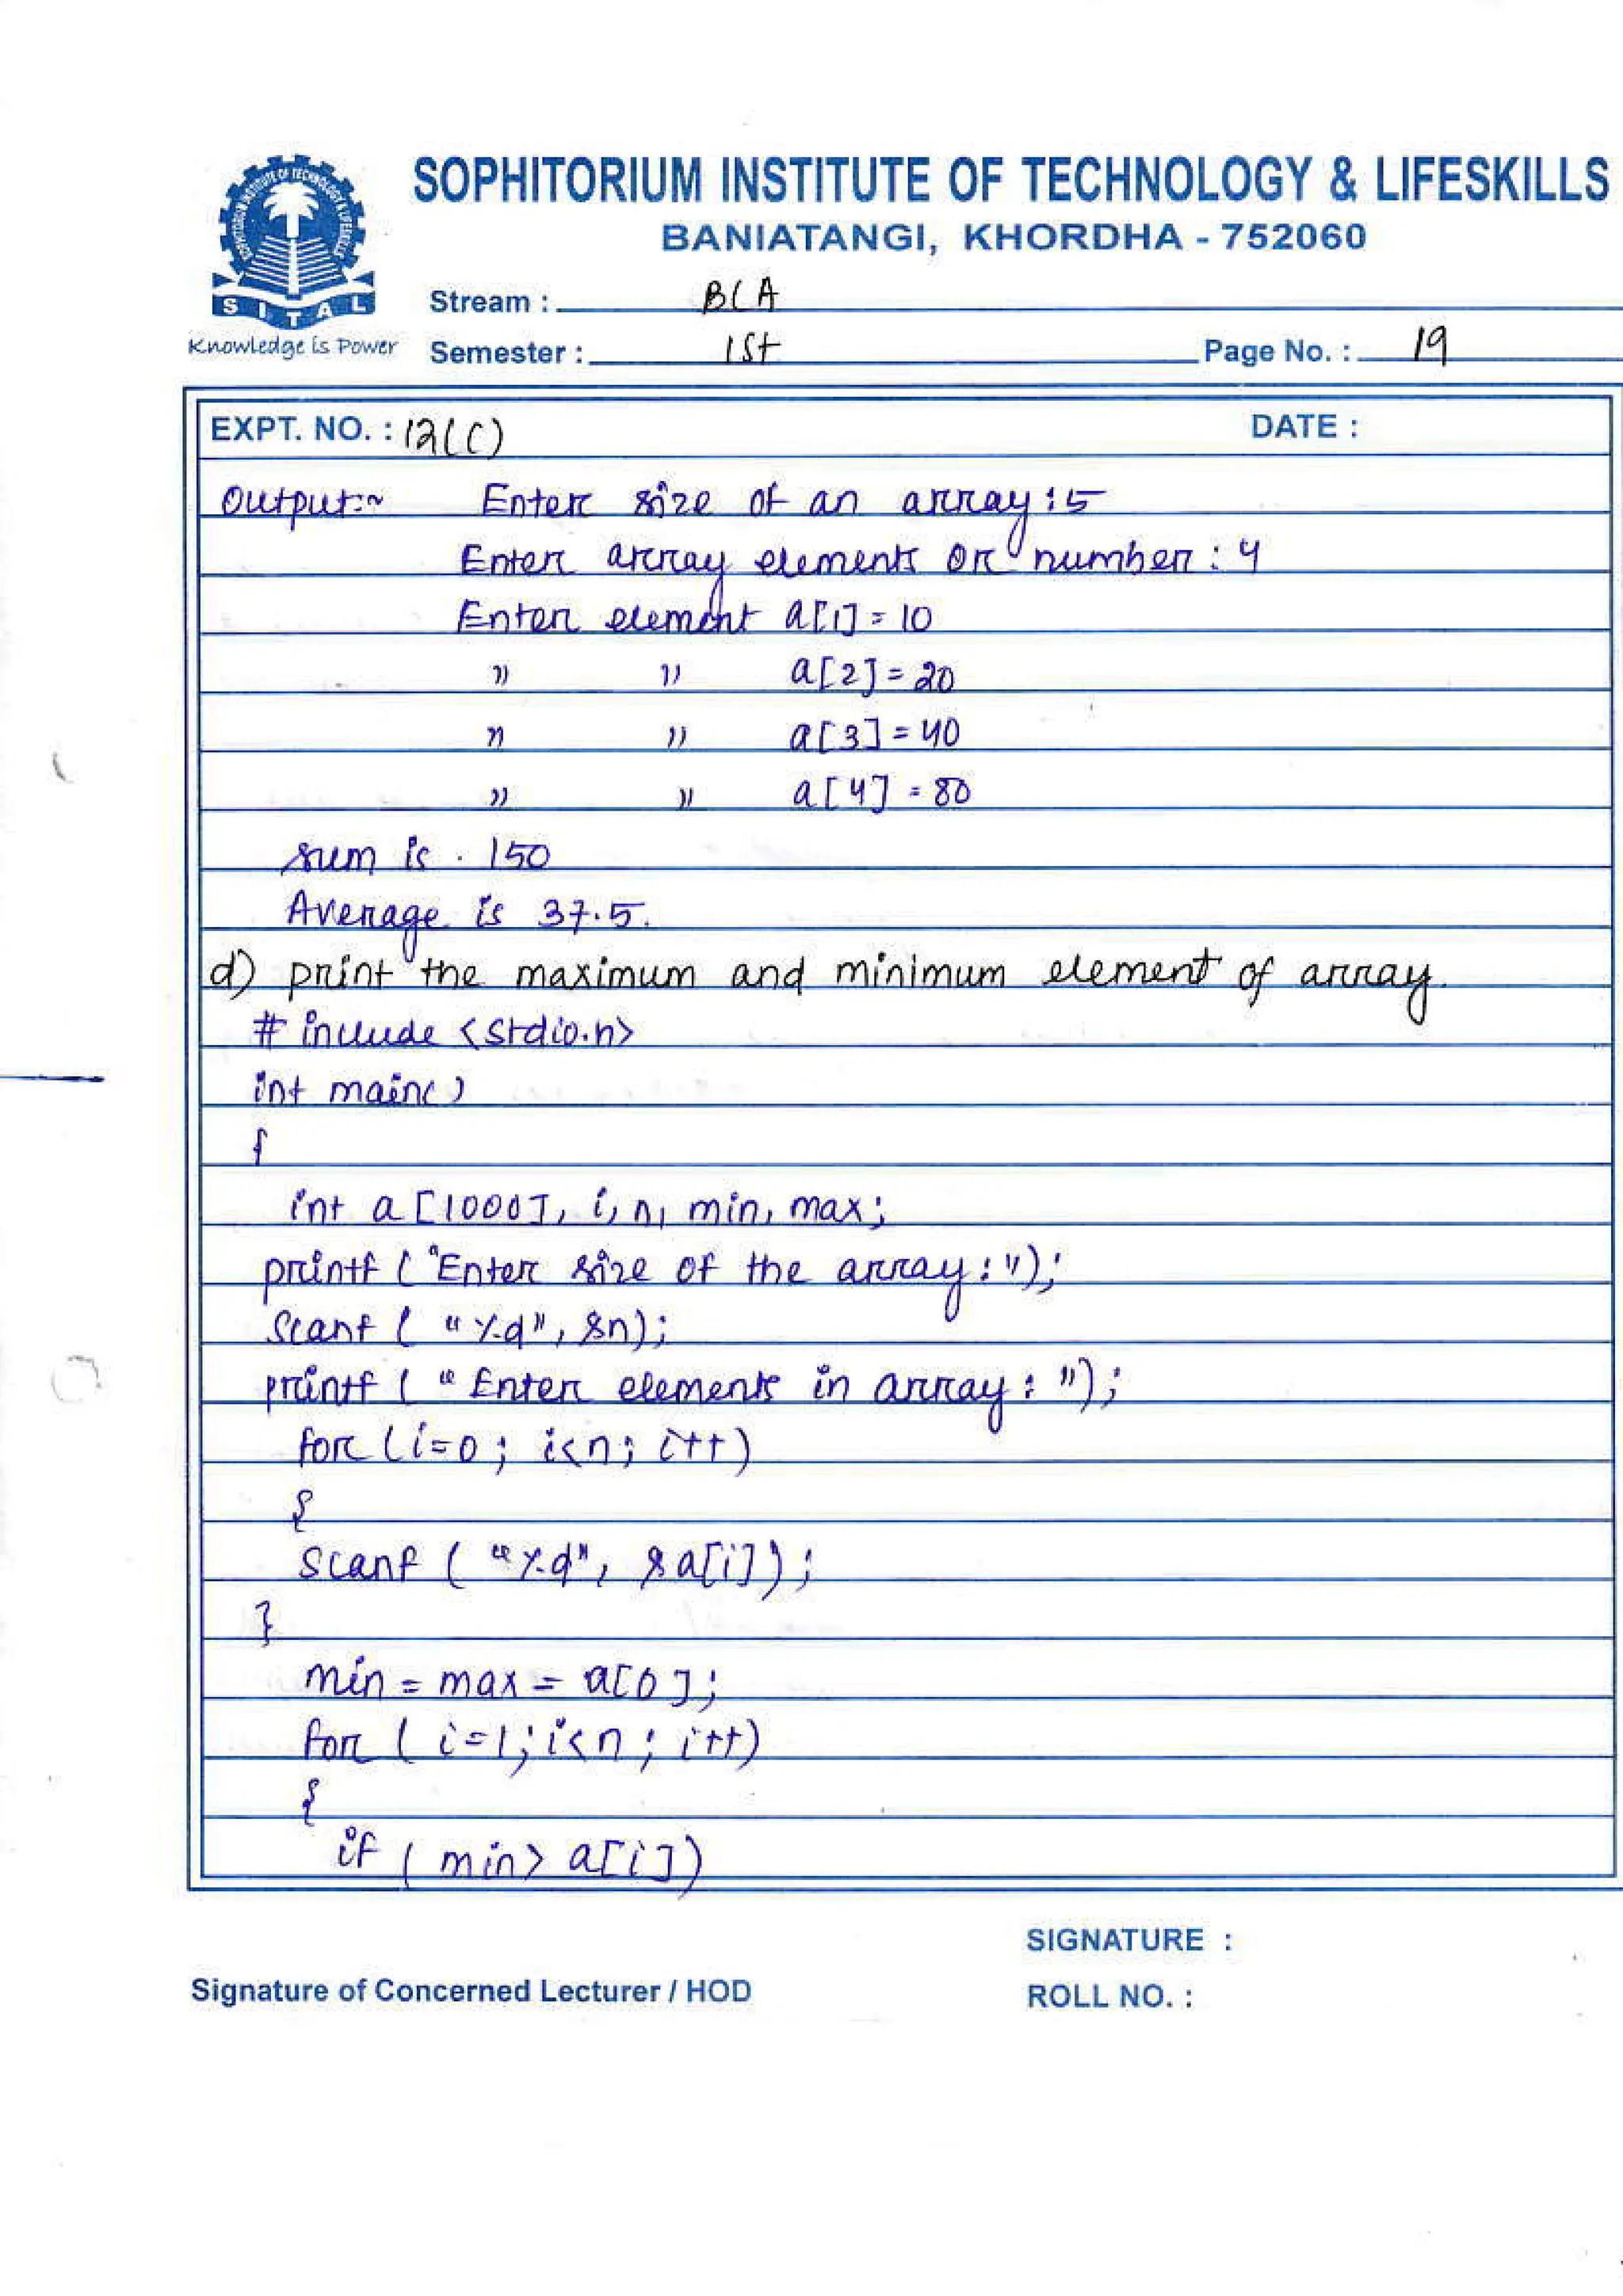 SOPHITORIUM INSTITUTE OF TECHNOLOGY & LIFESKILLS
BANIATANGI, KHORDHA - 752060
SITAL
Knowledge is Power
Stream : BCA
Semester : 1st Page No. : 19
EXPT. NO. : 12(C) DATE :
Output:~ Enter size of an array : 5
Enter array elements or number : 4
Enter element a[1] = 10
" " a[2] = 20
" " a[3] = 40
" " a[4] = 80
sum is . 150
Average is 37.5.
d) print the maximum and minimum element of array.
# include <stdio.h>
int main()
{
int a [1000], i, n, min, max;
printf ("Enter size of the array : ");
Scanf ( "%d", &n);
printf ( "Enter elements in array : ");
for (i=0 ; i<n; i++)
{
Scanf ( "%d", &a[i]);
}
min = max = a[0];
for ( i=1; i<n ; i++)
{
if ( min> a[i])
SIGNATURE :
Signature of Concerned Lecturer / HOD ROLL NO. :